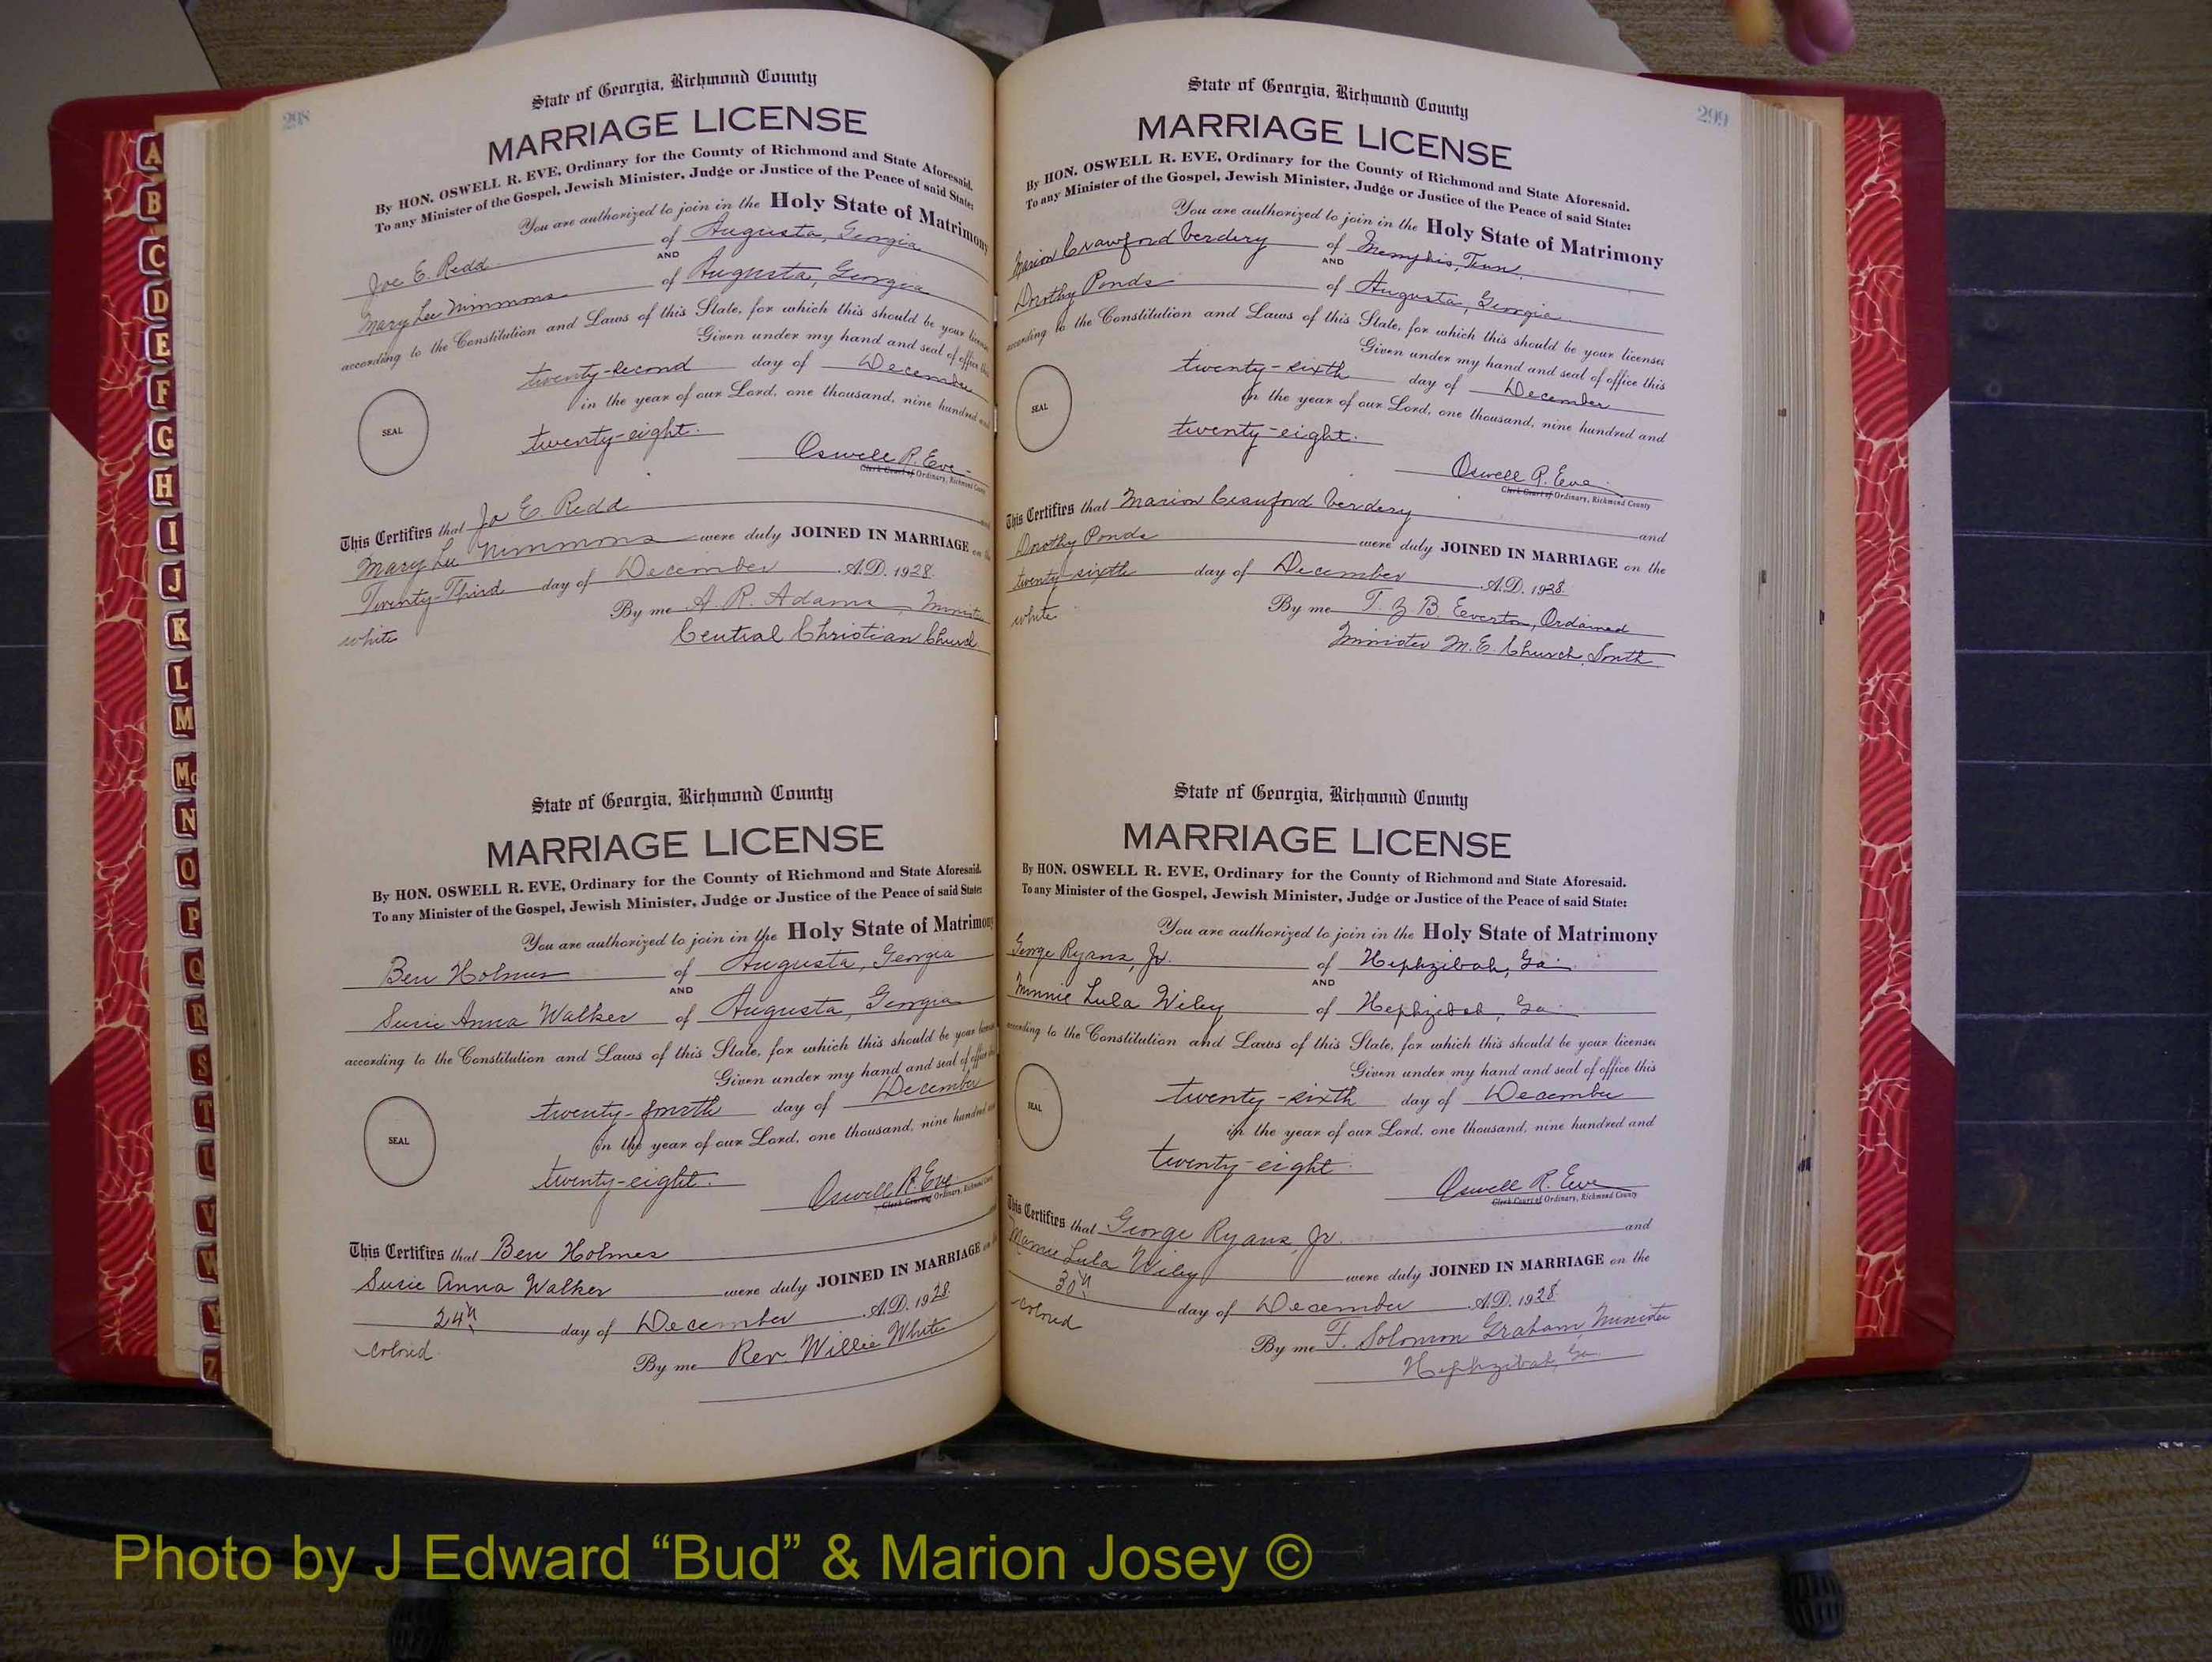 298
State of Georgia, Richmond County
MARRIAGE LICENSE
By HON. OSWELL R. EVE, Ordinary for the County of Richmond and State Aforesaid.
To any Minister of the Gospel, Jewish Minister, Judge or Justice of the Peace of said State:
You are authorized to join in the Holy State of Matrimony
Joe E. Redd of Augusta, Georgia
AND
Mary Lee Nimmons of Augusta, Georgia
according to the Constitution and Laws of this State, for which this should be your license
Given under my hand and seal of office this
twenty-second day of December
in the year of our Lord, one thousand, nine hundred and
SEAL
twenty-eight.
Oswell R. Eve
Clerk Court of Ordinary, Richmond County
This Certifies that Jo E. Redd and
Mary Lee Nimmons were duly JOINED IN MARRIAGE on the
Twenty-Third day of December A.D. 1928.
By me A. R. Adams, Minister
white
Central Christian Church
State of Georgia, Richmond County
MARRIAGE LICENSE
By HON. OSWELL R. EVE, Ordinary for the County of Richmond and State Aforesaid.
To any Minister of the Gospel, Jewish Minister, Judge or Justice of the Peace of said State:
You are authorized to join in the Holy State of Matrimony
Ben Holmes of Augusta, Georgia
AND
Susie Anna Walker of Augusta, Georgia
according to the Constitution and Laws of this State, for which this should be your license
Given under my hand and seal of office this
twenty-fourth day of December
in the year of our Lord, one thousand, nine hundred and
SEAL
twenty-eight.
Oswell R. Eve
Clerk Court of Ordinary, Richmond County
This Certifies that Ben Holmes
Susie Anna Walker were duly JOINED IN MARRIAGE on
24th day of December A.D. 1928.
colored
By me Rev. Willie White
299
State of Georgia, Richmond County
MARRIAGE LICENSE
By HON. OSWELL R. EVE, Ordinary for the County of Richmond and State Aforesaid.
To any Minister of the Gospel, Jewish Minister, Judge or Justice of the Peace of said State:
You are authorized to join in the Holy State of Matrimony
Marion Crawford Verdery of Memphis, Tenn.
AND
Dorothy Ponds of Augusta, Georgia
according to the Constitution and Laws of this State, for which this should be your license
Given under my hand and seal of office this
twenty-sixth day of December
In the year of our Lord, one thousand, nine hundred and
SEAL
twenty-eight.
Oswell R. Eve
Clerk Court of Ordinary, Richmond County
This Certifies that Marion Crawford Verdery
and
Dorothy Ponds were duly JOINED IN MARRIAGE on the
twenty sixth day of December A.D. 1928.
white
By me T. Z B. Everton, Ordained
Minister M. E. Church, South
State of Georgia, Richmond County
MARRIAGE LICENSE
By HON. OSWELL R. EVE, Ordinary for the County of Richmond and State Aforesaid.
To any Minister of the Gospel, Jewish Minister, Judge or Justice of the Peace of said State:
You are authorized to join in the Holy State of Matrimony
George Ryans, Jr. of Hephzibah, Ga.
AND
Minnie Lula Wiley of Hephzibah, Ga.
according to the Constitution and Laws of this State, for which this should be your license
Given under my hand and seal of office this
twenty-sixth day of December
in the year of our Lord, one thousand, nine hundred and
SEAL
twenty-eight.
Oswell R. Eve
Clerk Court of Ordinary, Richmond County
This Certifies that George Ryans, Jr. and
Lula Wiley were duly JOINED IN MARRIAGE on the
30th day of December A.D. 1928.
colored
By me F. Solomon Graham, Minister
Hephzibah, Ga.
A
B
C
D
E
F
G
H
I
J
K
L
M
Mc
N
O
P
Q
R
S
T
U
V
W
Y
Z
Photo by J Edward “Bud” & Marion Josey ©